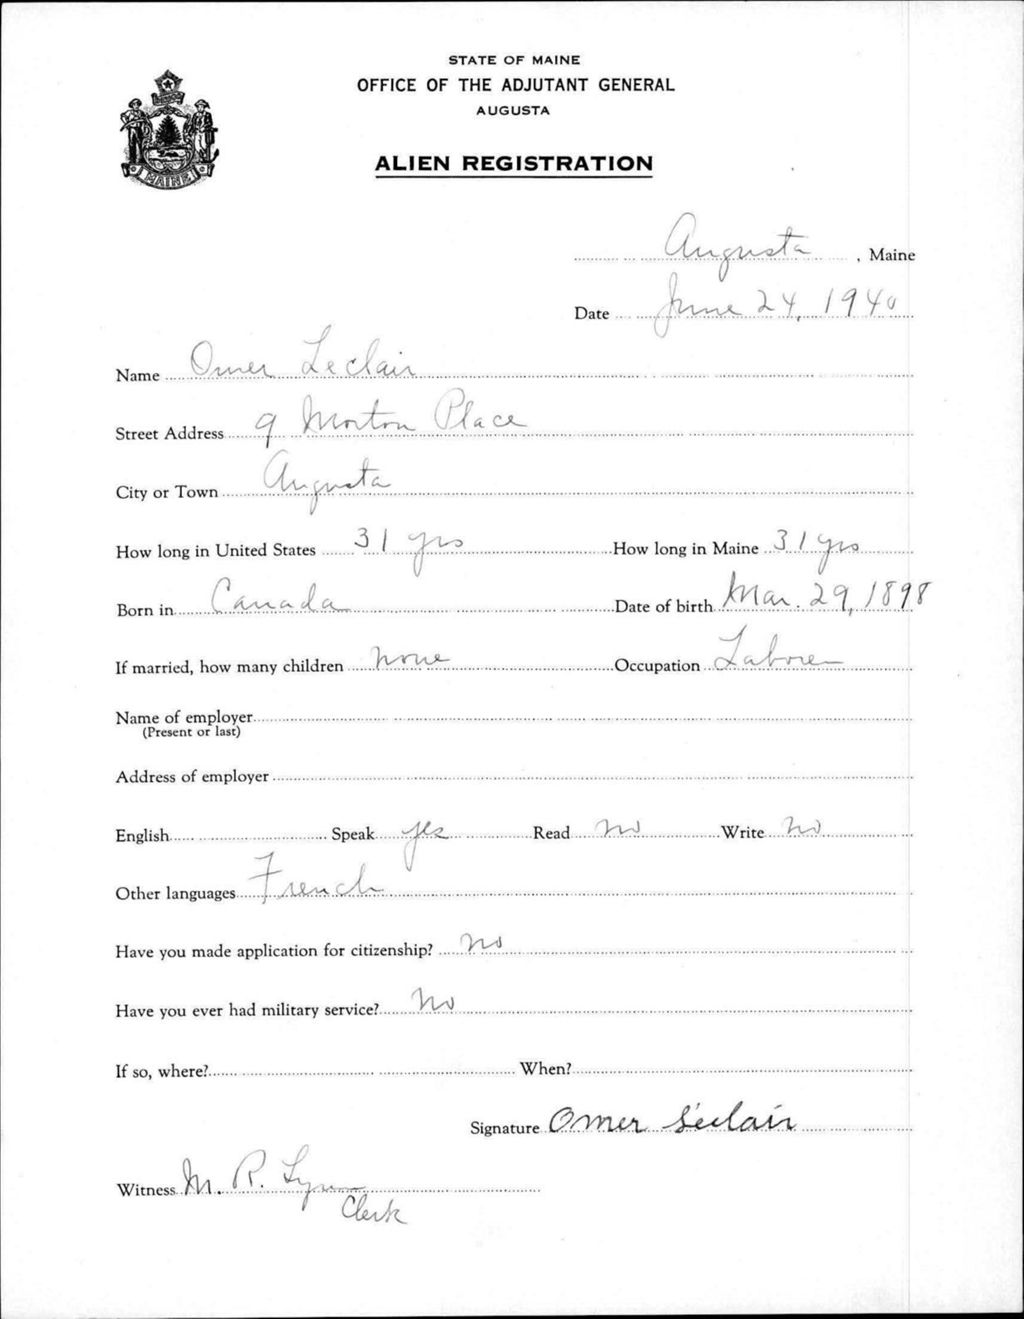 STATE OF MAINE
OFFICE OF THE ADJUTANT GENERAL
AUGUSTA
ALIEN REGISTRATION
MAINE
Augusta, Maine
Date June 24, 1940
Name Omer Leclair
Street Address 9 Morton Place
City or Town Augusta
How long in United States 31 yrs How long in Maine 31 yrs
Born in Canada Date of birth Mar. 29, 1898
If married, how many children none Occupation Laborer
Name of employer
(Present or last)
Address of employer
English Speak yes Read no Write no
Other languages French
Have you made application for citizenship? no
Have you ever had military service? no
If so, where? When?
Signature Omer Leclair
Witness M. R. Lynn
Clerk